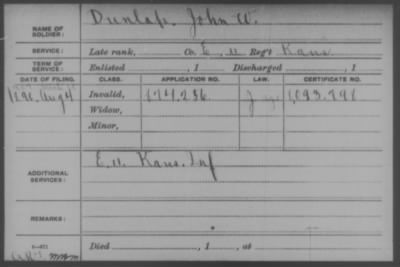 NAME OF SOLDIER: Dunlap, John W.
SERVICE: Late rank, Co. E, 11 Reg't Kans
TERM OF SERVICE: Enlisted , 1 Discharged , 1
DATE OF FILING. CLASS. APPLICATION NO. LAW. CERTIFICATE NO.
Aug 4 Invalid,
Widow,
Minor,
ADDITIONAL SERVICES: E. 11 Kans. Inf
REMARKS:
Died , 1 , at